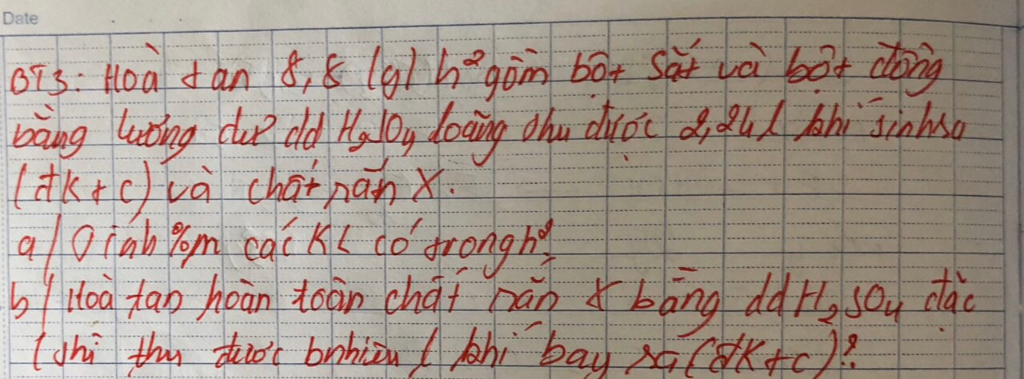 Date
BT3: Hoà tan 8,8 (g) h² gồm bột sắt và bột đồng
bằng lượng dư dd H₂SO₄ loãng thu được 2,24 l khí sinh ra
(đK+c) và chất rắn X.
a/ Tính %m các KL có trong h²
b/ Hoà tan hoàn toàn chất rắn X bằng dd H₂SO₄ đặc
thì thu được bnhiêu l khí bay ra (đK+c)?